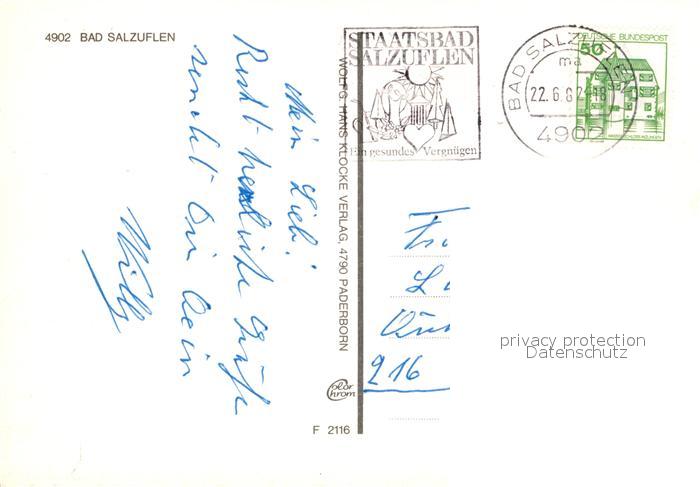 4902 BAD SALZUFLEN
Mein Lieb!
Recht herzliche Grüße
sendet Dir Dein
Willy
WOLFG. HANS KLOCKE VERLAG, 4790 PADERBORN
Color
Chrom
F 2116
STAATSBAD
SALZUFLEN
Ein gesundes Vergnügen
BAD SALZUFLEN
ma
22.6.82-18
4902
DEUTSCHE BUNDESPOST
50
216
privacy protection
Datenschutz